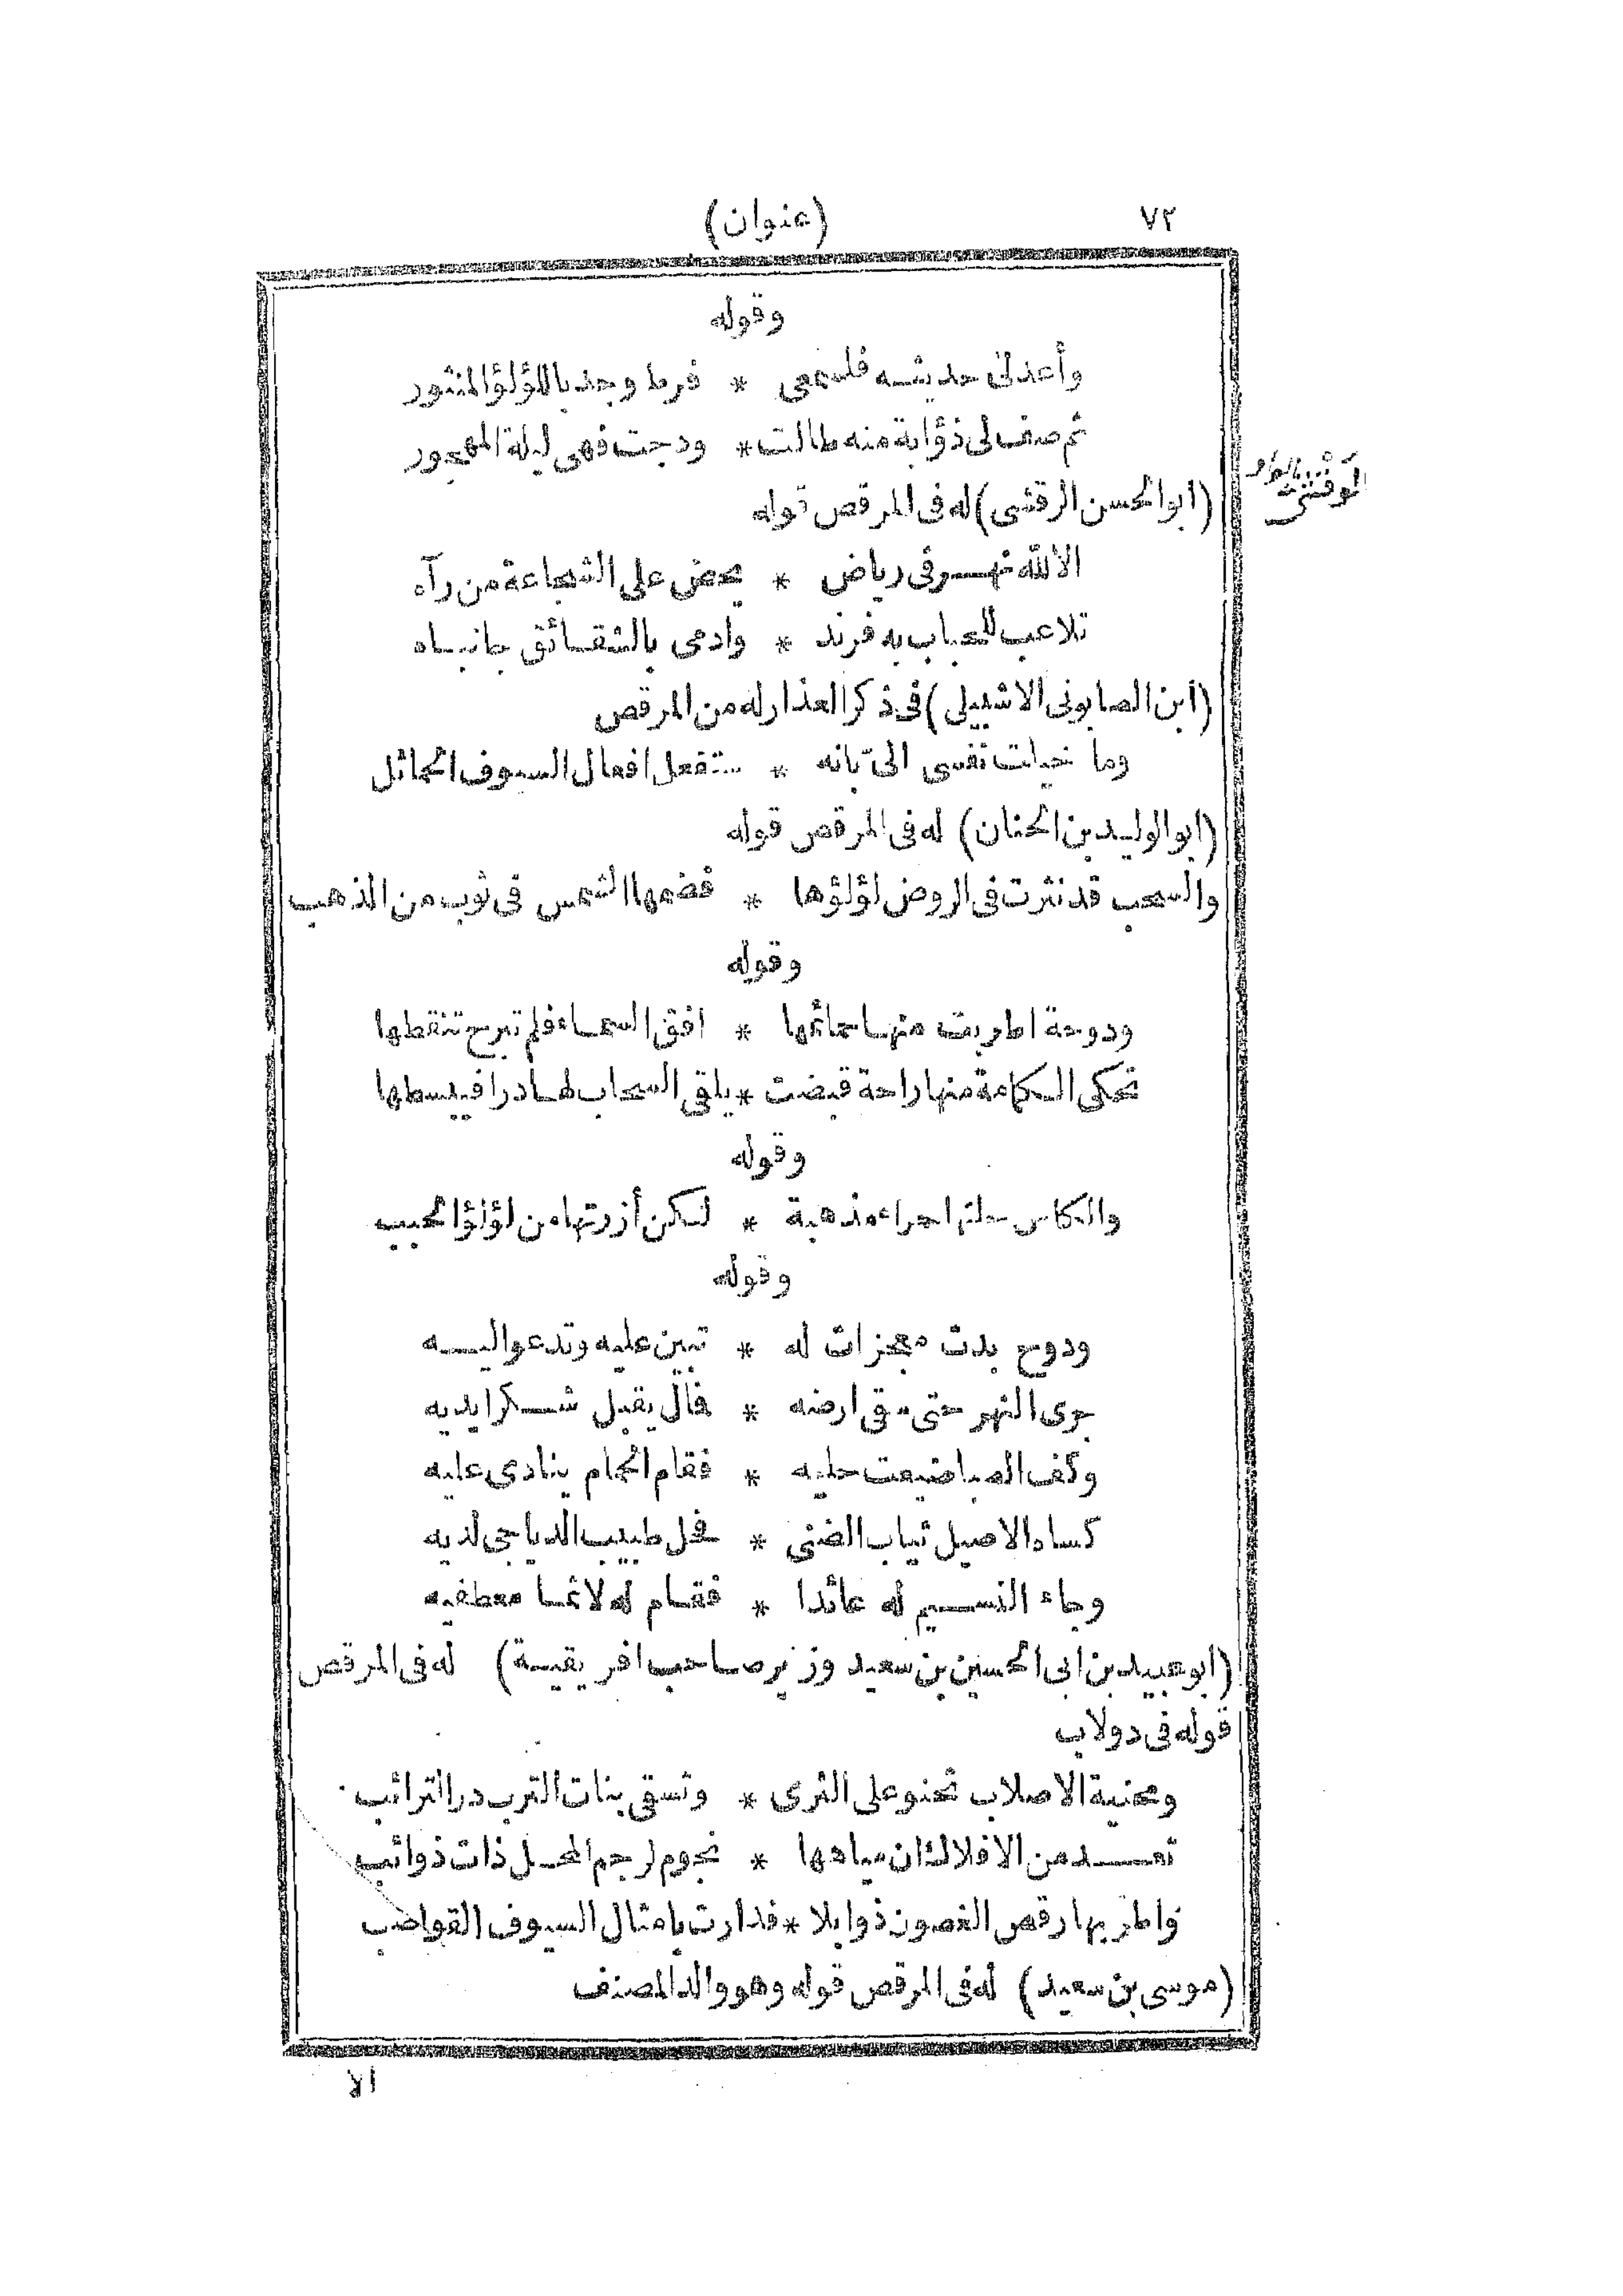 ٧٢
(عنوان)
وقوله
وأعد لى حديثه فلسمعى * فرط وجد باللؤلؤ المنثور
ثم صف لى ذؤابة منه طالت * ودجت فهى ليلة المهجور
(ابو الحسن الرقشى) له فى المرقص قوله
الا لله نهر فى رياض * يحض على الشجاعة من رآه
تلاعب للحباب به فرند * وادمى بالشقائق جانباه
(ابن الصابونى الاشبيلى) فى ذكر العذار له من المرقص
وما خيلت نفسى الى بانه * ستفعل افعال السيوف الحمائل
(ابو الوليد بن الحنان) له فى المرقص قوله
والسحب قد نثرت فى الروض لؤلؤها * فضمها الشمس فى ثوب من الذهب
وقوله
ودوحة اطربت منها حمائمها * افق السماء فلم تبرح تنقطها
تحكى الكمامة منها راحة قبضت * يلقى السحاب لها درا فيبسطها
وقوله
والكاس حلتها حمراء مذهبة * لكن أزرتها من لؤلؤ الحبب
وقوله
ودوح بدت معجزات له * تبين عليه وتدعو اليه
جرى النهر حتى سقى ارضه * فمال يقبل شكرا يديه
وكف الصبا ضيعت حليه * فقام الحمام ينادى عليه
كساه الاصيل ثياب الضنى * فحل طبيب الدياجى لديه
وجاء النسيم له عائدا * فقام له لاثما معطفيه
(ابو عبيد بن ابى الحسين بن سعيد وزير صاحب افريقية) له فى المرقص
قوله فى دولاب
ومحنية الاصلاب تحنو على الثرى * وتسقى بنات الترب در الترائب
تعد من الافلاك ان مياهها * نجوم لرجم المحل ذات ذوائب
واطربها رقص الغصون ذوابلا * فدارت بامثال السيوف القواضب
(موسى بن سعيد) له فى المرقص قوله وهو والد المصنف
الا